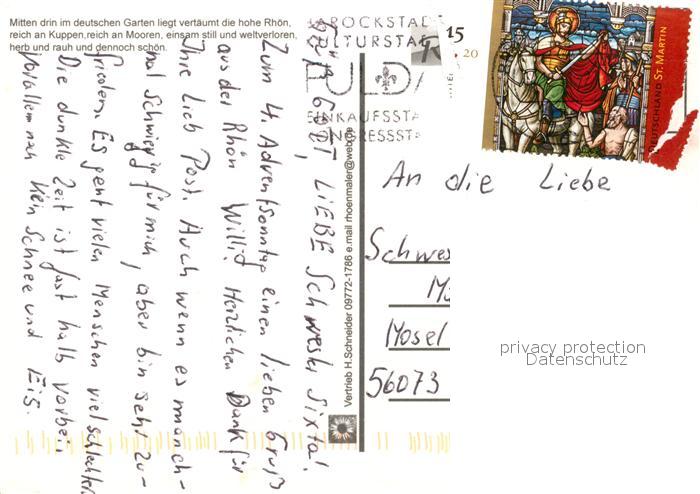 Mitten drin im deutschen Garten liegt vertäumt die hohe Rhön,
reich an Kuppen,reich an Mooren, einsam still und weltverloren,
herb und rauh und dennoch schön.
BAROCKSTADT
KULTURSTADT
FULDA
EINKAUFSSTA
KONGRESSSTA
15
20
DEUTSCHLAND ST. MARTIN
GRÜß GOTT LIEBE Schwester Sixta!
Zum 4. Adventsonntag einen lieben Gruß
aus der Rhön Willi! Herzlichen Dank für
Ihre Lieb Post. Auch wenn es manch-
mal schwierig für mich, aber bin sehr zu-
frieden. Es geht vielen Menschen viel schlechter.
Die dunkle Zeit ist fast halb vorbei.
Vorallem nach kein Schnee und Eis.
Vertrieb H.Schneider 09772-1786 e.mail rhoenmaler@web.de
An die Liebe
Schwes
Mo
Mosel
56073
privacy protection
Datenschutz